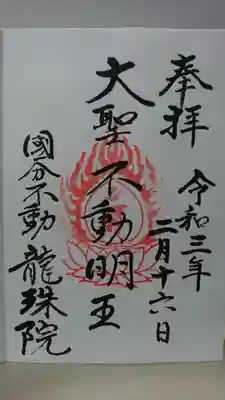 奉拝
令和三年
二月十六日
大聖不動明王
國分不動
龍珠院